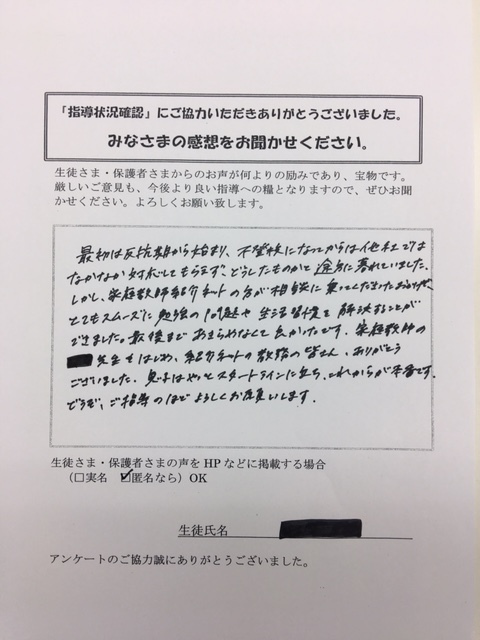 「指導状況確認」にご協力いただきありがとうございました。
みなさまの感想をお聞かせください。
生徒さま・保護者さまからのお声が何よりの励みであり、宝物です。
厳しいご意見も、今後より良い指導への糧となりますので、ぜひお聞
かせください。よろしくお願い致します。
最初は反抗期から始まり、不登校になってからは他社では
なかなか対応してもらえず、どうしたものかと途方に暮れていました。
しかし、家庭教師紹介ネットの方が相談に乗ってくださったおかげで、
とてもスムーズに勉強の問題や生活習慣を解決することが
できました。最後まであきらめなくて良かったです。家庭教師の
先生をはじめ、紹介ネットの教務の皆さん、ありがとう
ございました。息子はやっとスタートラインに立ち、これからが本番です。
どうぞ、ご指導のほどよろしくお願いします。
生徒さま・保護者さまの声をHPなどに掲載する場合
(□実名 ☑匿名なら)OK
生徒氏名
アンケートのご協力誠にありがとうございました。